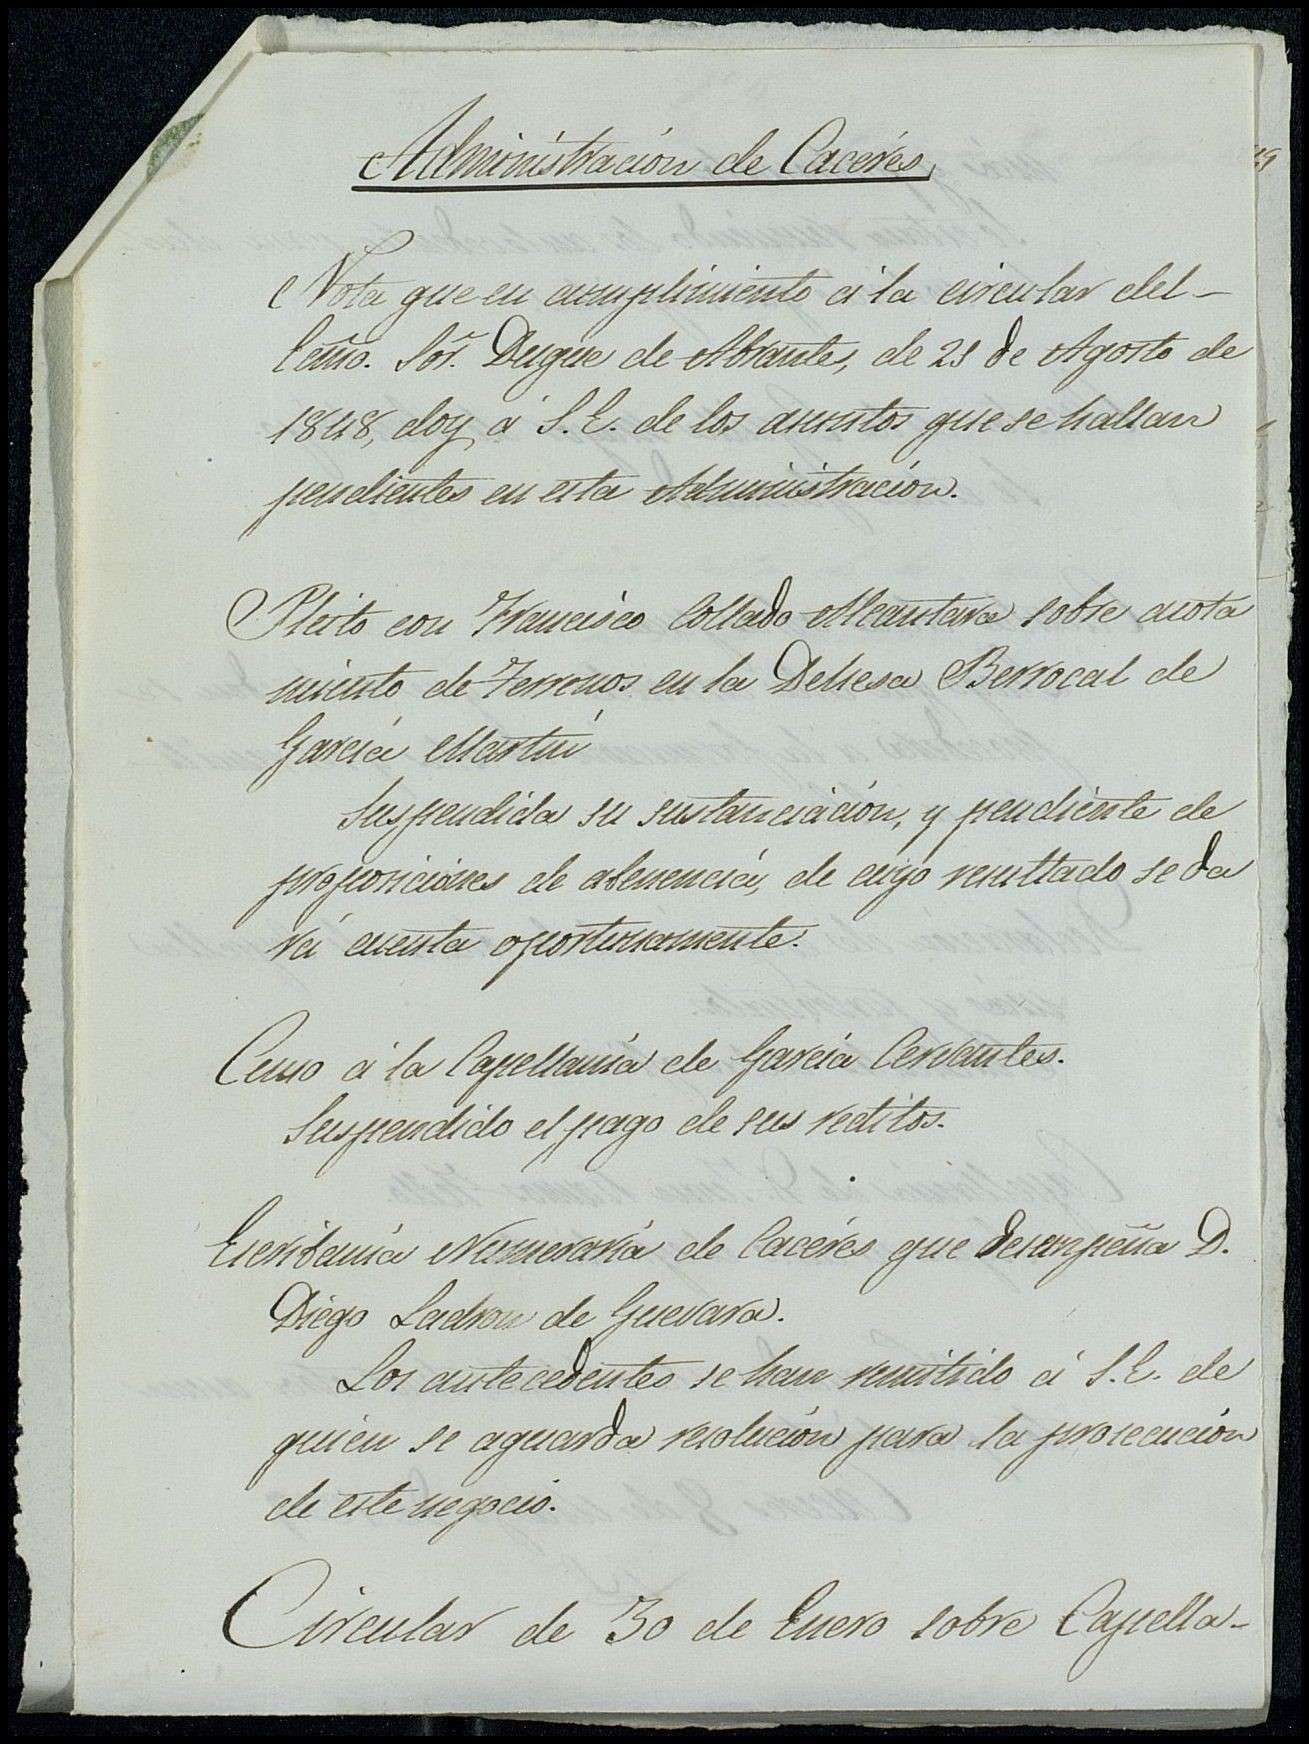 Administración de Caceres,
Nota que en cumplimiento á la circular del-
Excmo. Sor. Duque de Abrantes, de 29 de Agosto de
1848, doy á S.E. de los asuntos que se hallan
pendientes en esta Administración.
Pleito con Francisco Collado Alcantara sobre acota
miento de Terrenos en la Dehesa Berrocal de
Garcia Martin
Suspendida su sustanciación, y pendiente de
proposiciones de abenencia, de cuyo resultado se da
rá cuenta oportunamente.
Censo á la Capellania de Garcia Cervantes.
Suspendido el pago de sus reditos.
Escribania Numeraria de Caceres que desempeña D.
Diego Ladron de Guevara.
Los antecedentes se han remitido á S.E. de
quien se aguarda resolución para la prosecución
de este negocio.
Circular de 30 de Enero sobre Capella-